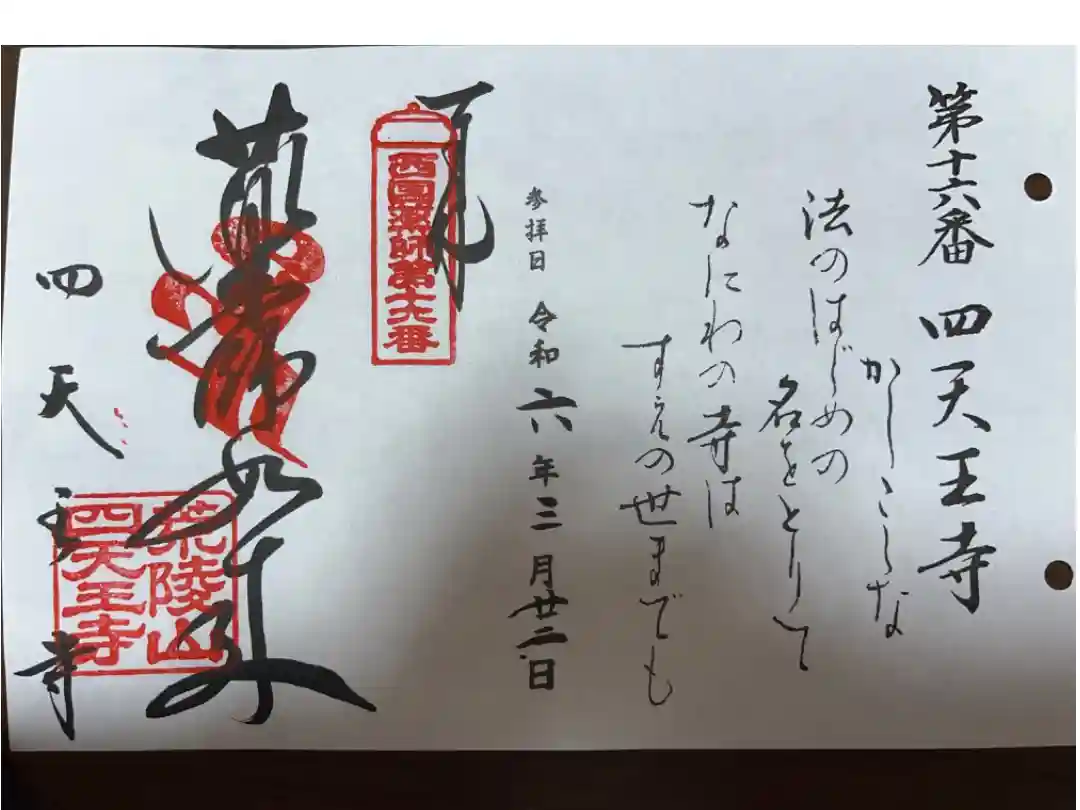 第十六番 四天王寺
かしこしな
法のはじめの
名をとりて
なにわの寺は
すえの世までも
参拝日 令和六年三月廿二日
西国薬師第十六番
薬師如来
荒陵山
四天王寺
四天王寺